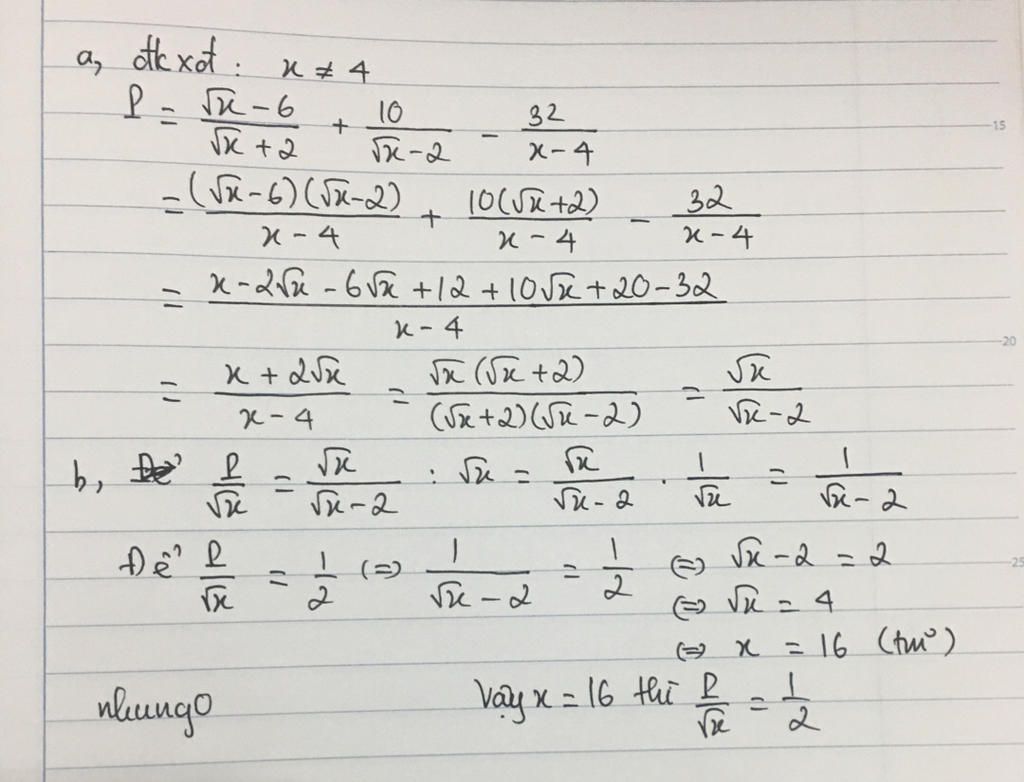 a, đkxđ : x ≠ 4
P = (√x − 6)/(√x + 2) + 10/(√x − 2) − 32/(x − 4)
= (√x − 6)(√x − 2)/(x − 4) + 10(√x + 2)/(x − 4) − 32/(x − 4)
= (x − 2√x − 6√x + 12 + 10√x + 20 − 32)/(x − 4)
= (x + 2√x)/(x − 4) = √x(√x + 2)/((√x + 2)(√x − 2)) = √x/(√x − 2)
b, P/√x = √x/(√x − 2) : √x = √x/(√x − 2) . 1/√x = 1/(√x − 2)
Để P/√x = 1/2 (=) 1/(√x − 2) = 1/2 (=) √x − 2 = 2
(=) √x = 4
(=) x = 16 (tm)
nhung0 Vậy x = 16 thì P/√x = 1/2
15
20
25